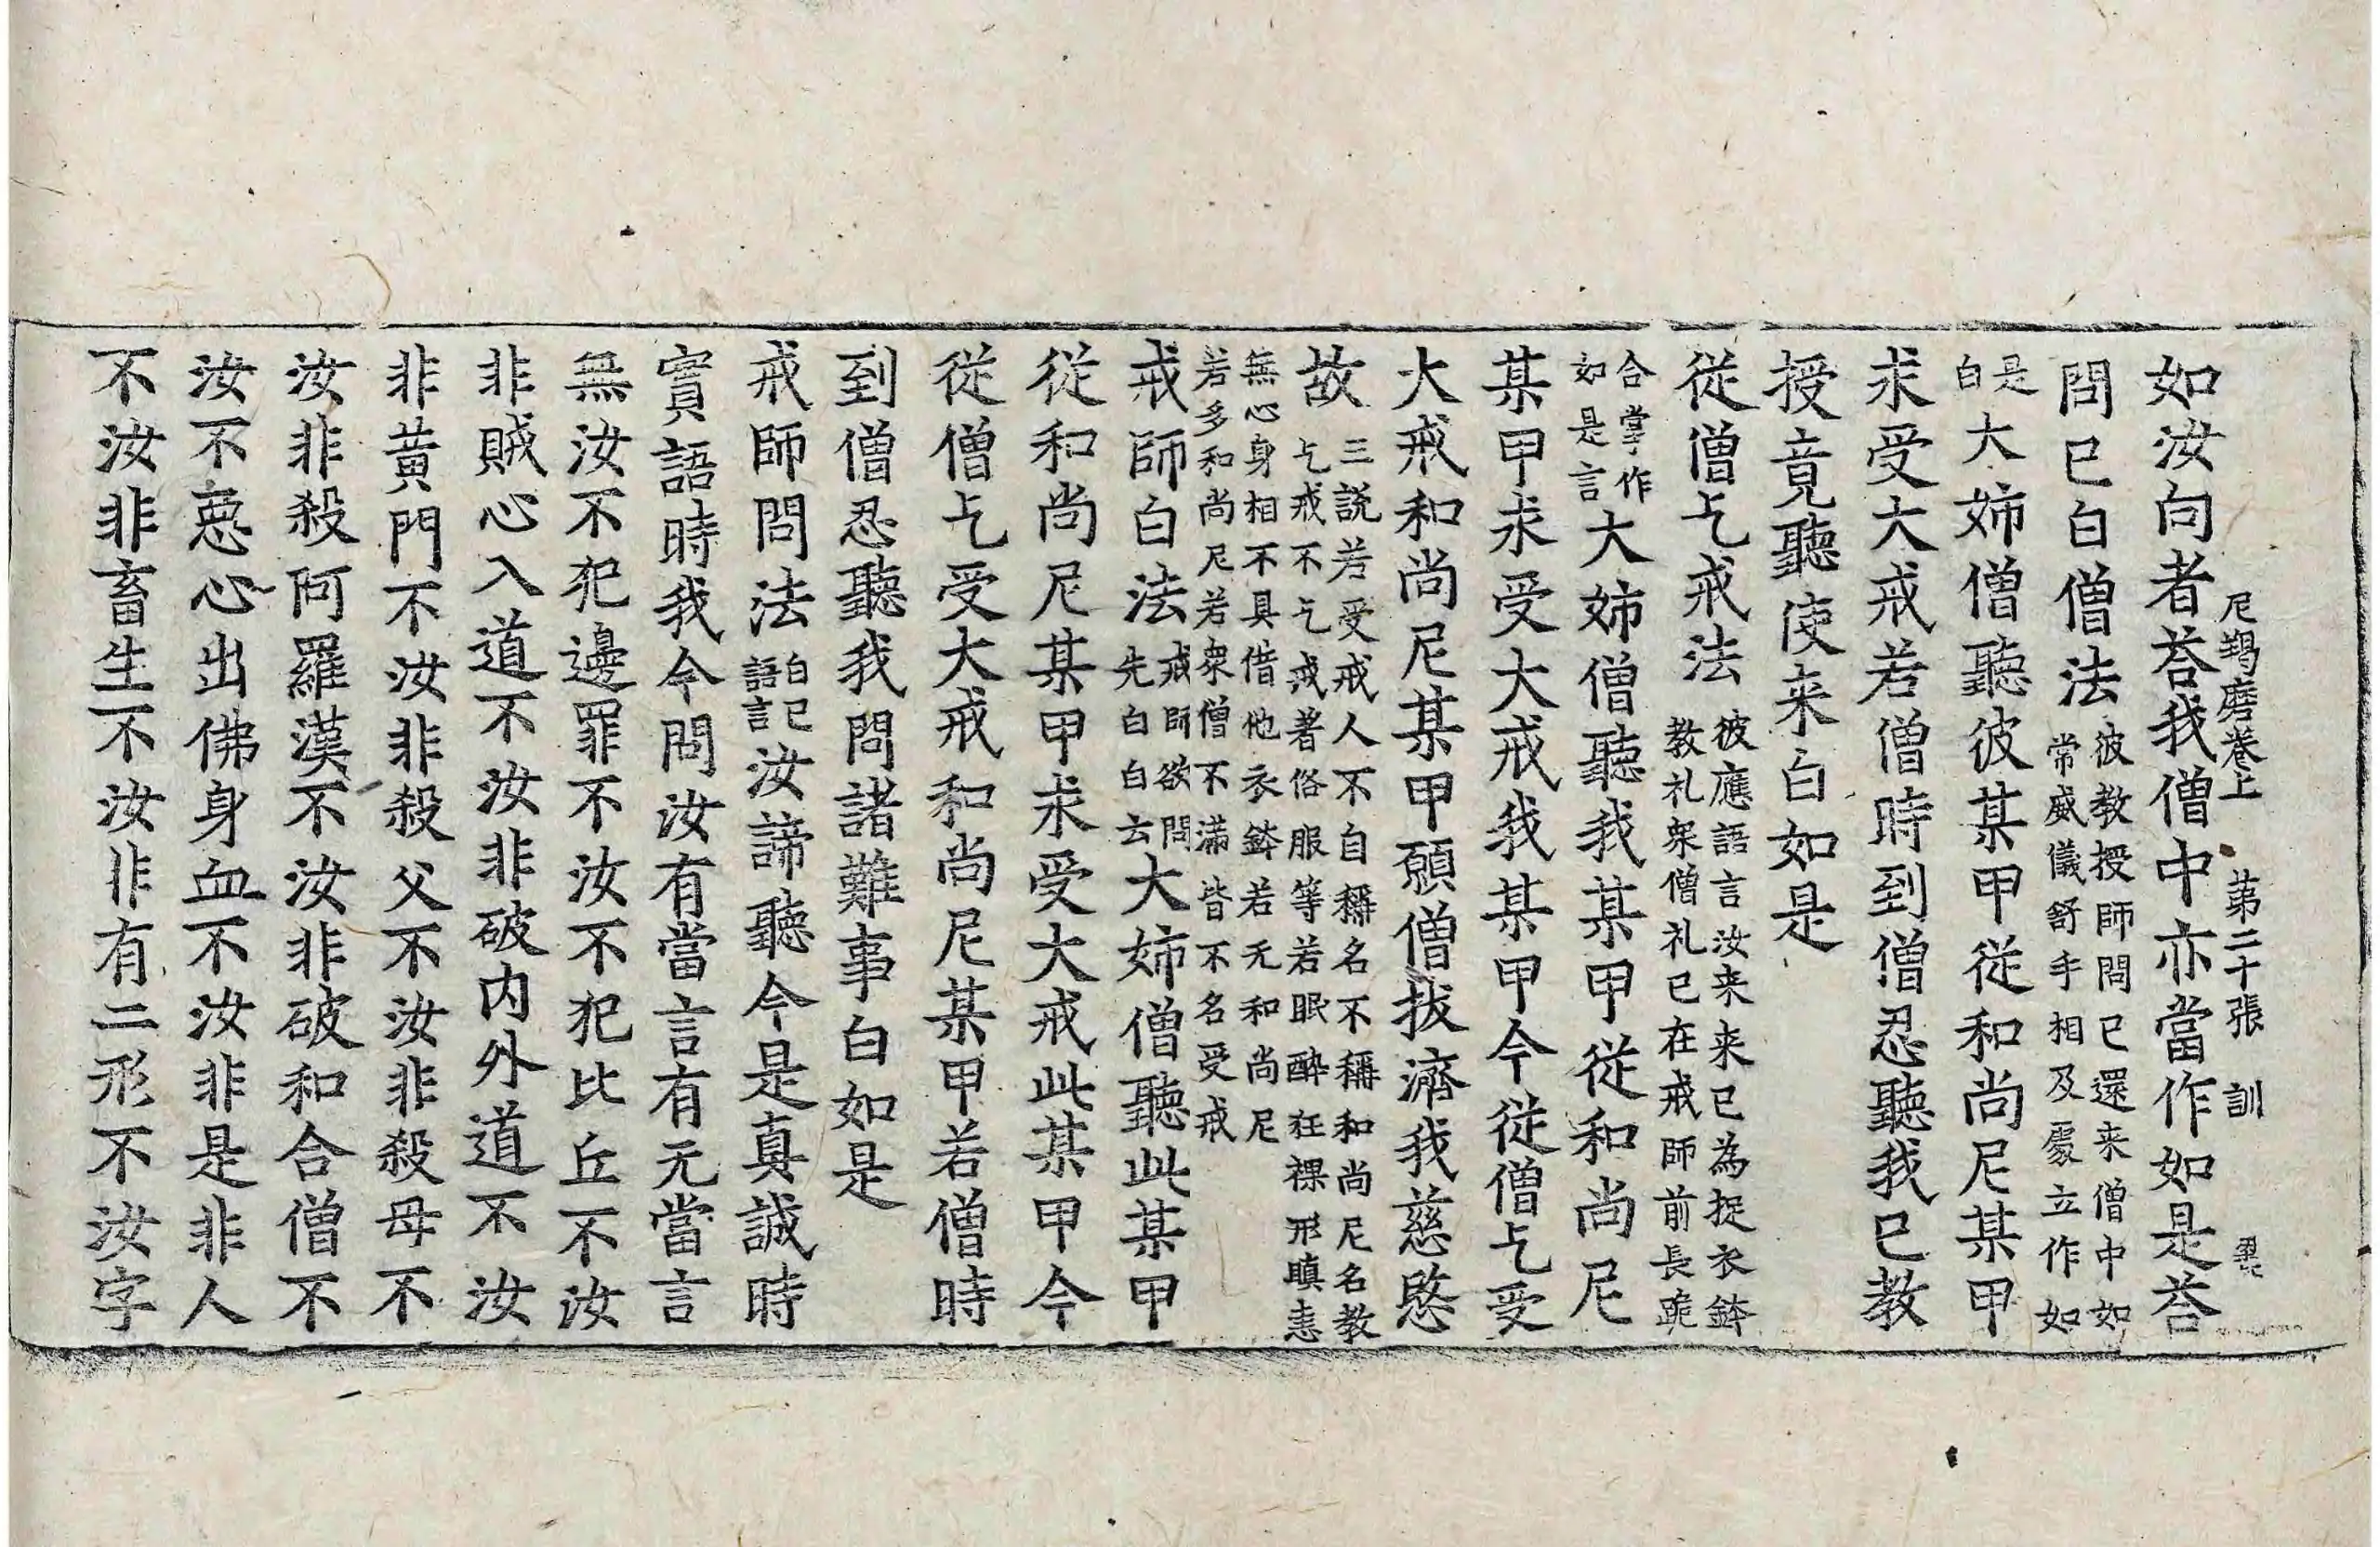 尼羯磨卷上 第二十張 訓
如汝向者荅我僧中亦當作如是荅
問已白僧法彼教授師問已還来僧中如常威儀舒手相及處立作如
是白大姉僧聽彼某甲從和尚尼某甲
求受大戒若僧時到僧忍聽我已教
授竟聽使来白如是
從僧乞戒法彼應語言汝来来已為捉衣鉢教礼衆僧礼已在戒師前長跪
合掌作如是言大姉僧聽我某甲從和尚尼
某甲求受大戒我某甲今從僧乞受
大戒和尚尼某甲願僧拔濟我慈愍
故三說若受戒人不自稱名不稱和尚尼名教乞戒不乞戒著俗服等若眠醉狂裸形瞋恚
無心身相不具借他衣鉢若无和尚尼若多和尚尼若衆僧不滿皆不名受戒
戒師白法戒師欲問先白白云大姉僧聽此某甲
從和尚尼某甲求受大戒此某甲今
從僧乞受大戒和尚尼某甲若僧時
到僧忍聽我問諸難事白如是
戒師問法白已語言汝諦聽今是真誠時
實語時我今問汝有當言有无當言
無汝不犯邊罪不汝不犯比丘不汝
非賊心入道不汝非破内外道不汝
非黄門不汝非殺父不汝非殺母不
汝非殺阿羅漢不汝非破和合僧不
汝不惡心出佛身血不汝非是非人
不汝非畜生不汝非有二形不汝字